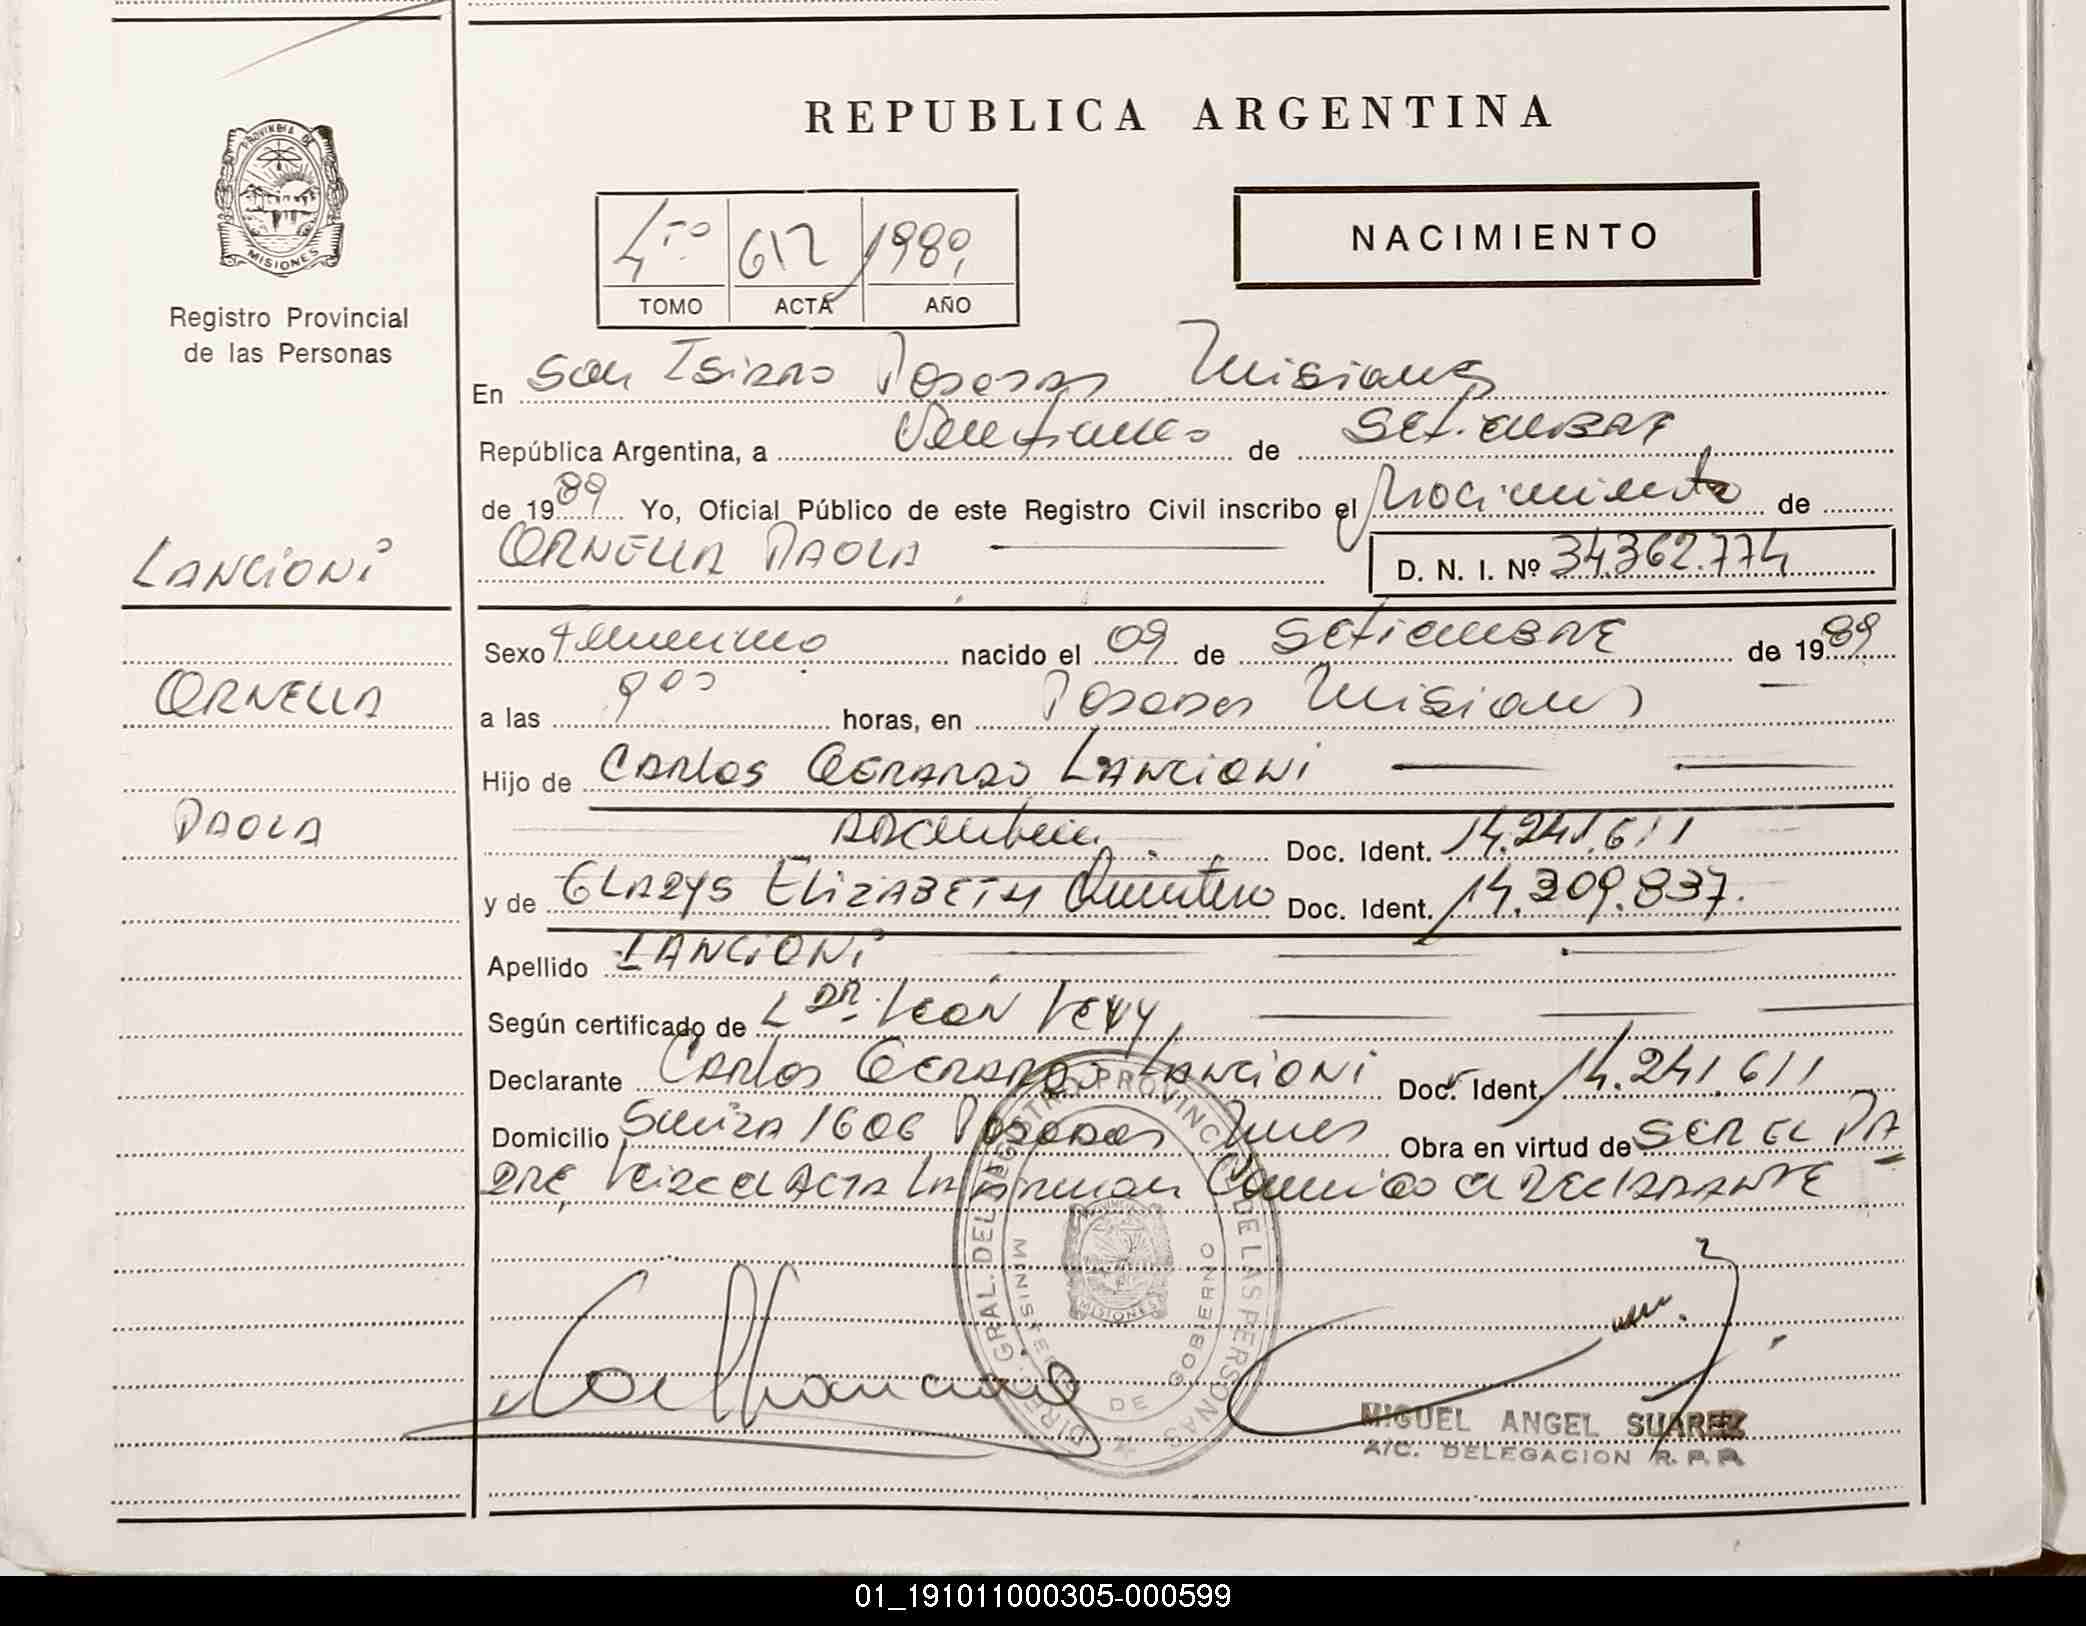 REPUBLICA ARGENTINA
PROVINCIA DE
MISIONES
Registro Provincial
de las Personas
4to 612 1989
TOMO ACTA AÑO
NACIMIENTO
En San Isidro Posadas Misiones
República Argentina, a Veintiuno de Setiembre
de 1989 Yo, Oficial Público de este Registro Civil inscribo el Nacimiento de
LANCIONI
ORNELLA PAOLA
D. N. I. Nº 34.362.774
Sexo Femenino nacido el 09 de Setiembre de 1989
ORNELLA
a las 9 horas, en Posadas Misiones
Hijo de Carlos Gerardo Lancioni
PAOLA
Argentina Doc. Ident. 14.241.611
y de GLADYS ELIZABETH Quintero Doc. Ident. 14.309.837.
Apellido LANCIONI
Según certificado de L Dr. León Levy
Declarante Carlos Gerardo Lancioni Doc. Ident. 14.241.611
Domicilio Suiza 1606 Posadas Mnes Obra en virtud de SER EL PA
DRE, Leida el Acta La firman Conmigo el Declarante
DIREC. GRAL. DEL REGISTRO PROVINCIAL DE LAS PERSONAS
MINISTERIO DE GOBIERNO
MISIONES
MIGUEL ANGEL SUAREZ
A/C. DELEGACION R. P. P.
01_191011000305-000599